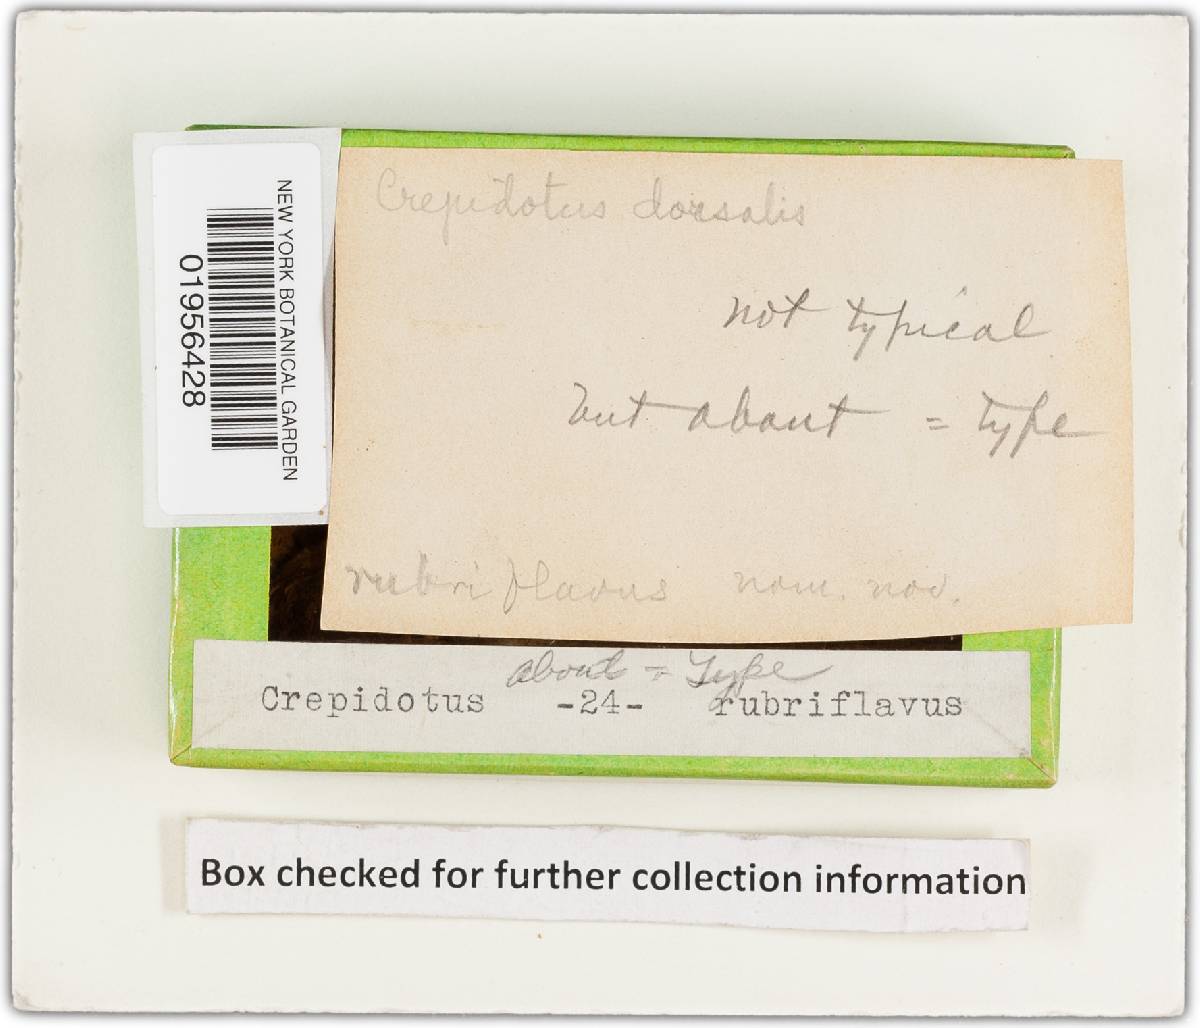 NEW YORK BOTANICAL GARDEN
01956428
Crepidotus dorsalis
not typical
but about = type
rubriflavus nom. nov.
about = Type
Crepidotus -24- rubriflavus
Box checked for further collection information